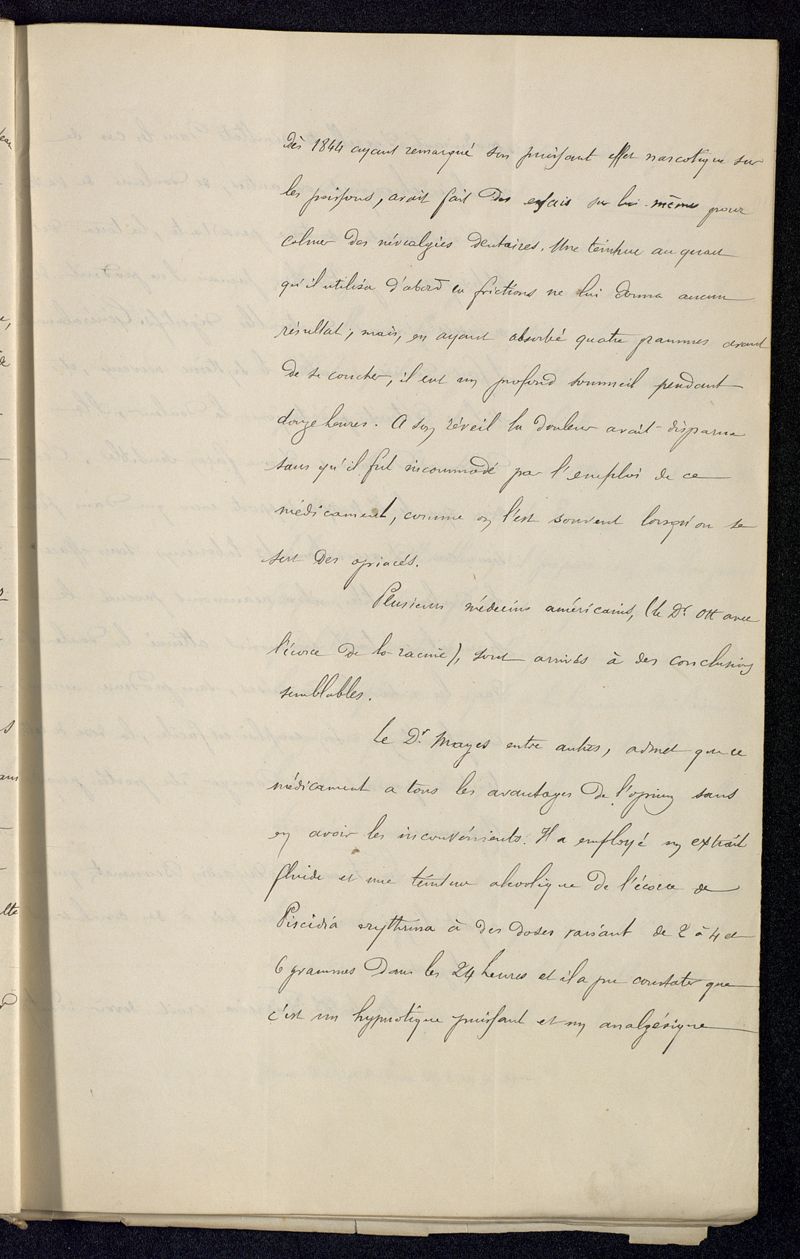 Dès 1844 ayant remarqué son puissant effet narcotique sur
les poissons, avait fait des essais sur lui-même pour
calmer des névralgies dentaires. Une teinture au quart
qu'il utilisa d'abord en frictions ne lui donna aucun
résultat; mais, en ayant absorbé quatre grammes avant
de se coucher, il eut un profond sommeil pendant
douze heures. A son réveil la douleur avait disparue
sans qu'il fut incommodé par l'emploi de ce
médicament, comme on l'est souvent lorsqu'on se
sert des opiacés.
Plusieurs médecins américains, (le Dr Ott avec
l'écorce de la racine), sont arrivés à des conclusions
semblables.
Le Dr Mayes entre autres, admet que ce
médicament a tous les avantages de l'opium sans
en avoir les inconvénients. Il a employé un extrait
fluide et une teinture alcoolique de l'écorce de
Piscidia erythrina à des doses variant de 2 à 4 et
6 grammes dans les 24 heures et il a pu constater que
c'est un hypnotique puissant et un analgésique